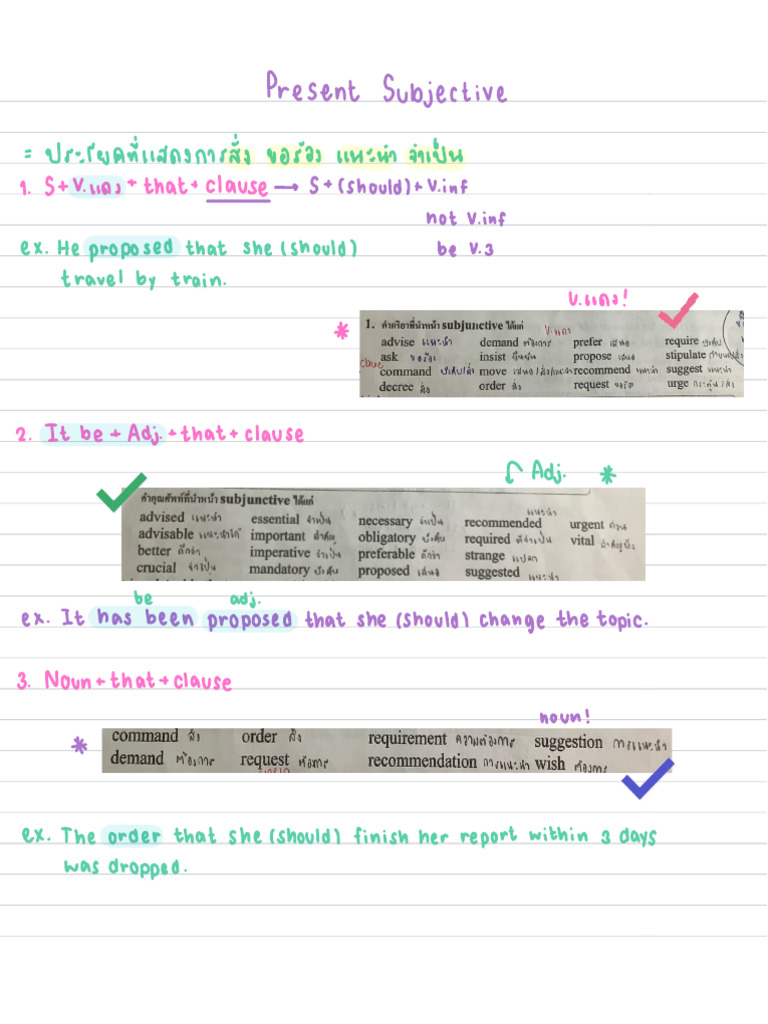 Present Subjective
= ประโยคที่แสดงการสั่ง ขอร้อง แนะนำ จำเป็น
1. S+ V.แดง + that + clause → S + (should) + V.inf
not V.inf
be V.3
ex. He proposed that she (should)
travel by train.
V.แดง!
* 1. คำกริยาที่นำหน้า subjunctive ได้แก่ V.แดง
advise แนะนำ demand ต้องการ prefer เสนอ require บังคับ
ask ขอร้อง insist ยืนยัน propose เสนอ stipulate
command บังคับ/สั่ง move recommend แนะนำ suggest แนะนำ
decree สั่ง order สั่ง request ขอร้อง urge
2. It be + Adj. + that + clause
Adj. *
คำคุณศัพท์ที่นำหน้า subjunctive ได้แก่
advised แนะนำ essential จำเป็น necessary จำเป็น recommended แนะนำ urgent ด่วน
advisable important สำคัญ obligatory บังคับ required vital
better ดีกว่า imperative จำเป็น preferable ดีกว่า strange แปลก
crucial จำเป็น mandatory บังคับ proposed เสนอ suggested แนะนำ
be adj.
ex. It has been proposed that she (should) change the topic.
3. Noun + that + clause
noun!
* command สั่ง order สั่ง requirement ความต้องการ suggestion การแนะนำ
demand ต้องการ request recommendation การแนะนำ wish ต้องการ
ex. The order that she (should) finish her report within 3 days
was dropped.